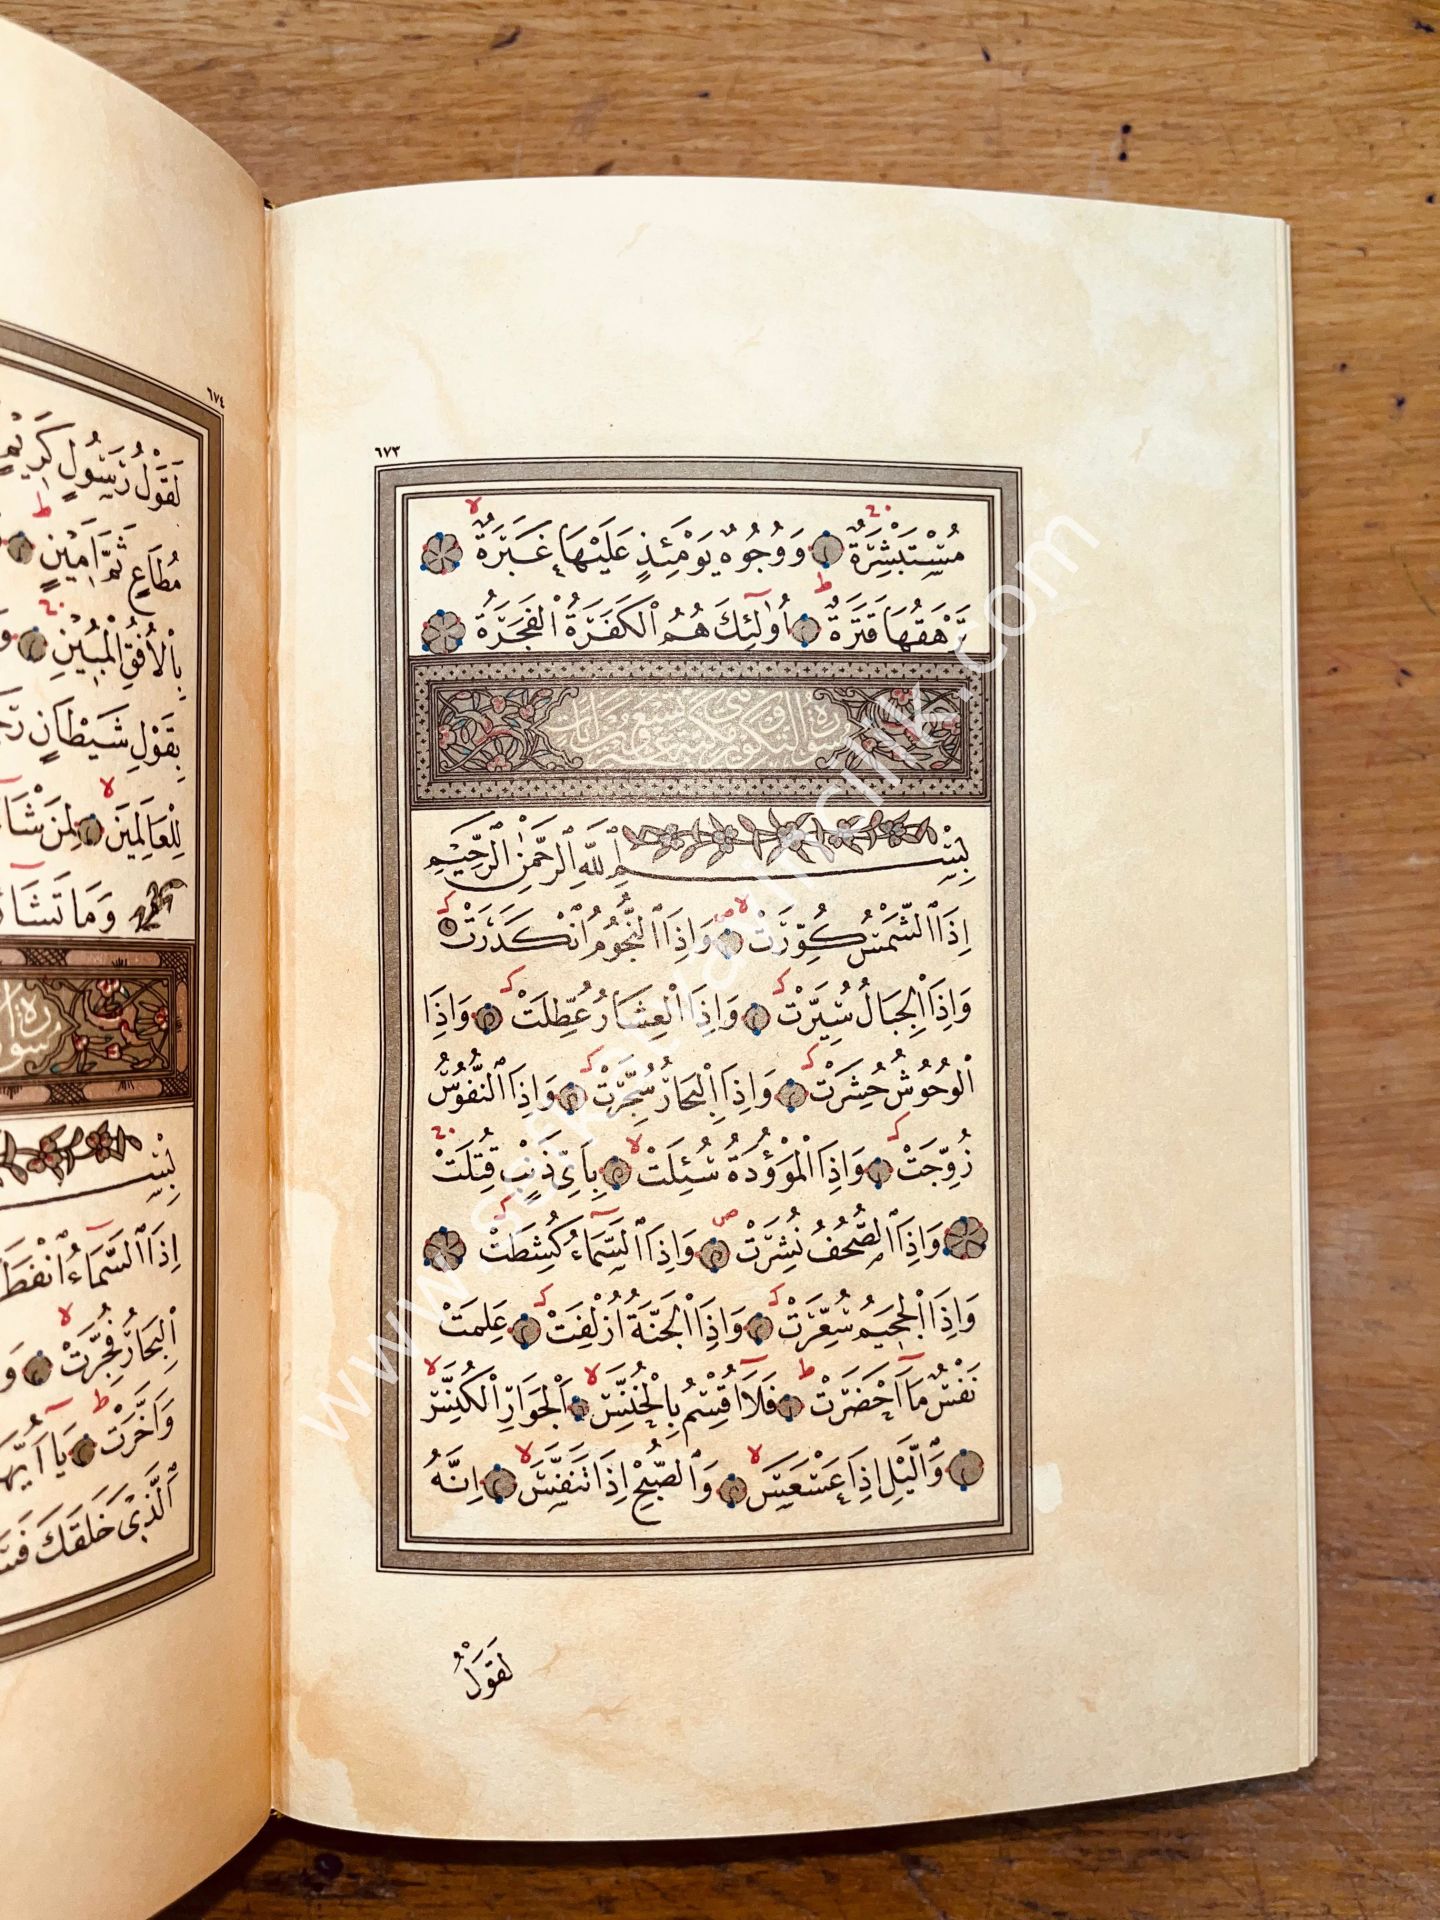 ٦٧٣
مُسْتَبْشِرَةٌ وَوُجُوهٌ يَوْمَئِذٍ عَلَيْهَا غَبَرَةٌ
تَرْهَقُهَا قَتَرَةٌ أُولٰئِكَ هُمُ الْكَفَرَةُ الْفَجَرَةُ
سورة التكوير مكية وهي تسع وعشرون آيات
بِسْمِ اللَّهِ الرَّحْمٰنِ الرَّحِيمِ
اِذَا الشَّمْسُ كُوِّرَتْ وَاِذَا النُّجُومُ انْكَدَرَتْ
وَاِذَا الْجِبَالُ سُيِّرَتْ وَاِذَا الْعِشَارُ عُطِّلَتْ وَاِذَا
الْوُحُوشُ حُشِرَتْ وَاِذَا الْبِحَارُ سُجِّرَتْ وَاِذَا النُّفُوسُ
زُوِّجَتْ وَاِذَا الْمَوْؤُدَةُ سُئِلَتْ بِاَىِّ ذَنْبٍ قُتِلَتْ
وَاِذَا الصُّحُفُ نُشِرَتْ وَاِذَا السَّمَاءُ كُشِطَتْ
وَاِذَا الْجَحِيمُ سُعِّرَتْ وَاِذَا الْجَنَّةُ اُزْلِفَتْ عَلِمَتْ
نَفْسٌ مَا اَحْضَرَتْ فَلَا اُقْسِمُ بِالْخُنَّسِ اَلْجَوَارِ الْكُنَّسِ
وَالَّيْلِ اِذَا عَسْعَسَ وَالصُّبْحِ اِذَا تَنَفَّسَ اِنَّهُ
لَقَوْلُ
٦٧٤
لَقَوْلُ رَسُولٍ كَرِيمٍ
مُطَاعٍ ثَمَّ اَمِينٍ
بِالْاُفُقِ الْمُبِينِ
بِقَوْلِ شَيْطَانٍ
لِلْعَالَمِينَ لِمَنْ شَاءَ
وَمَا
بِسْمِ
اِذَا السَّمَاءُ
الْبِحَارُ فُجِّرَتْ
وَاَخَّرَتْ يَا
الَّذِى خَلَقَكَ